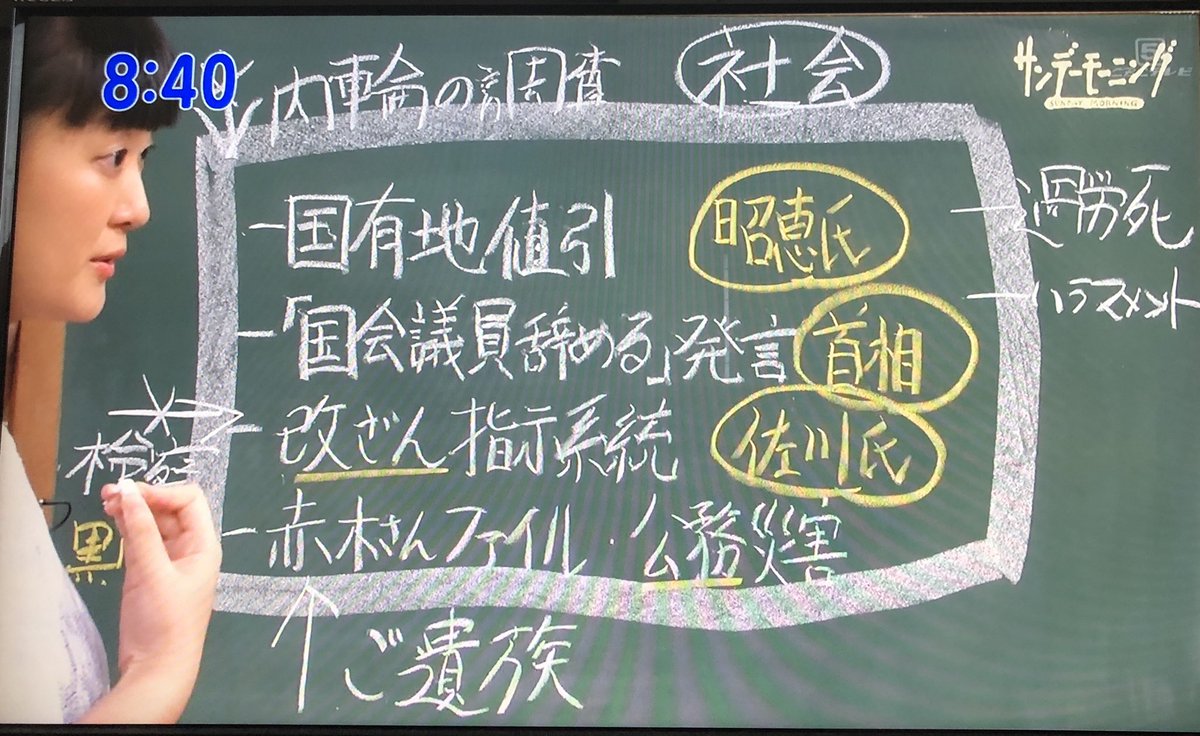 8:40
内輪の調査 社会
サンデーモーニング
SUNDAY MORNING
5
国有地値引 昭恵氏
過労死
「国会議員辞める」発言 首相
ハラスメント
改ざん指示系統 佐川氏
検察
赤木さんファイル・公務災害
黒
ご遺族